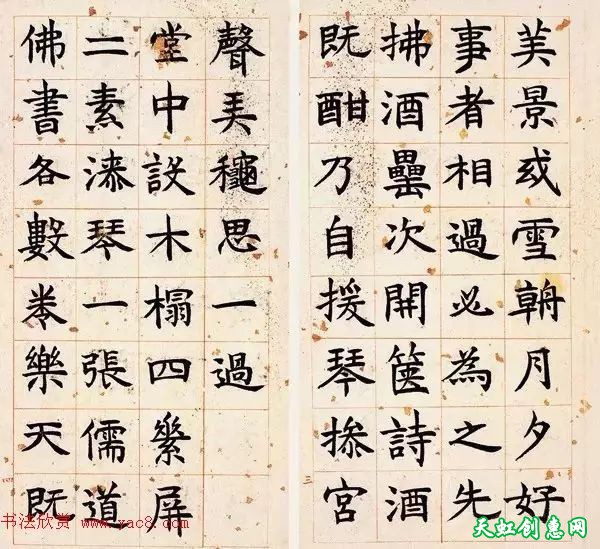 美景或雪朝月夕好
事者相過必為之先
拂酒罍次開篋詩酒
既酣乃自援琴操宮
三
聲弄穐思一過
堂中設木榻四素屏
二素漆琴一張儒道
佛書各數卷樂天既
书法欣赏 www.yac8.com
天虹创意网